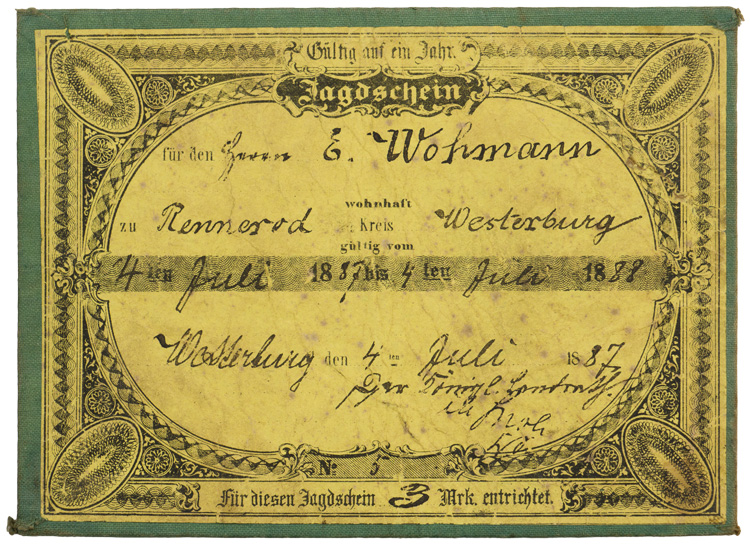 Gültig auf ein Jahr.
Jagdschein
für den Herrn E. Wohmann
wohnhaft
zu Rennerod Kreis Westerburg
gültig vom
4 ten Juli 1887 bis 4 ten Juli 1888
Westerburg den 4 ten Juli 1887
Der Königl. Landrath.
№ 5
Für diesen Jagdschein 3 Mrk. entrichtet.